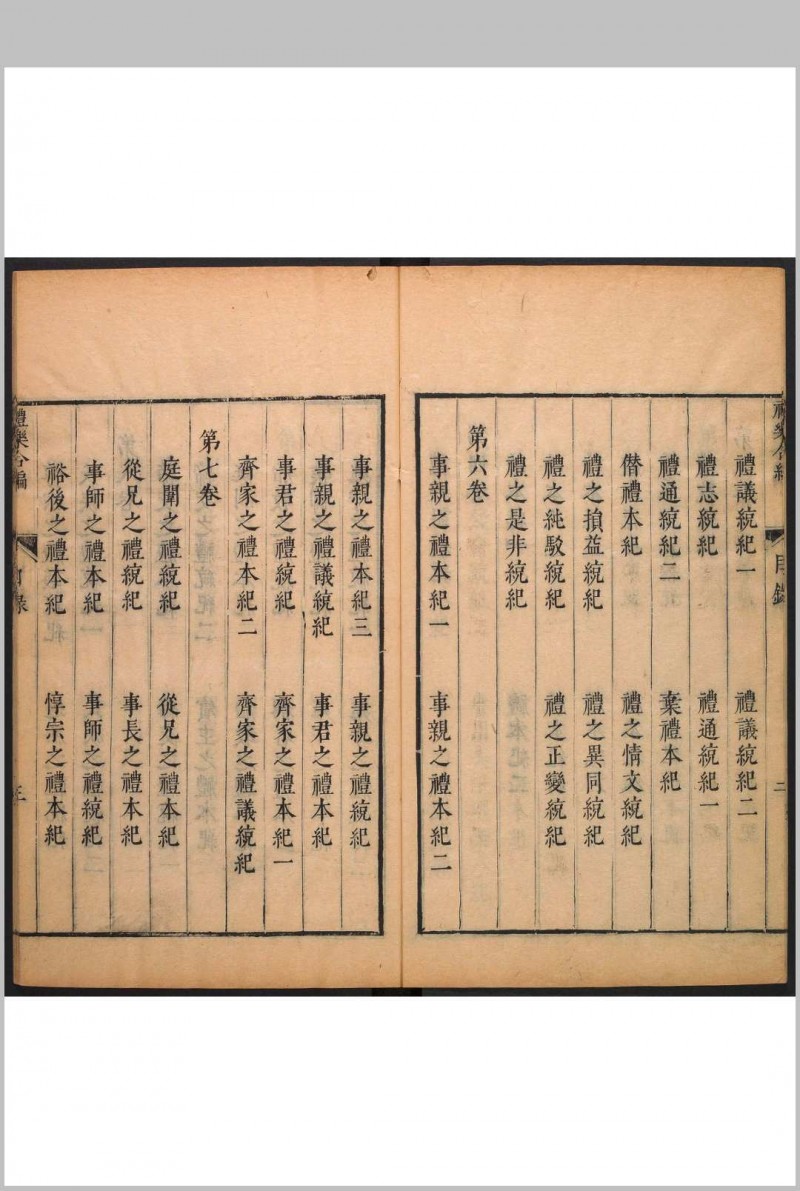 禮樂合編
目錄
二
禮議統紀一 禮議統紀二
禮志統紀 禮通統紀一
禮通統紀二 棄禮本紀
僭禮本紀 禮之情文統紀
禮之損益統紀 禮之異同統紀
禮之純駁統紀 禮之正變統紀
禮之是非統紀
第六卷
事親之禮本紀一 事親之禮本紀二
事親之禮本紀三 事親之禮統紀
事親之禮議統紀 事君之禮本紀
事君之禮統紀 齊家之禮本紀一
齊家之禮本紀二 齊家之禮議統紀
第七卷
庭闈之禮統紀 從兄之禮本紀
從兄之禮統紀 事長之禮本紀
事師之禮本紀 事師之禮統紀
裕後之禮本紀 惇宗之禮本紀
禮樂合編
目錄